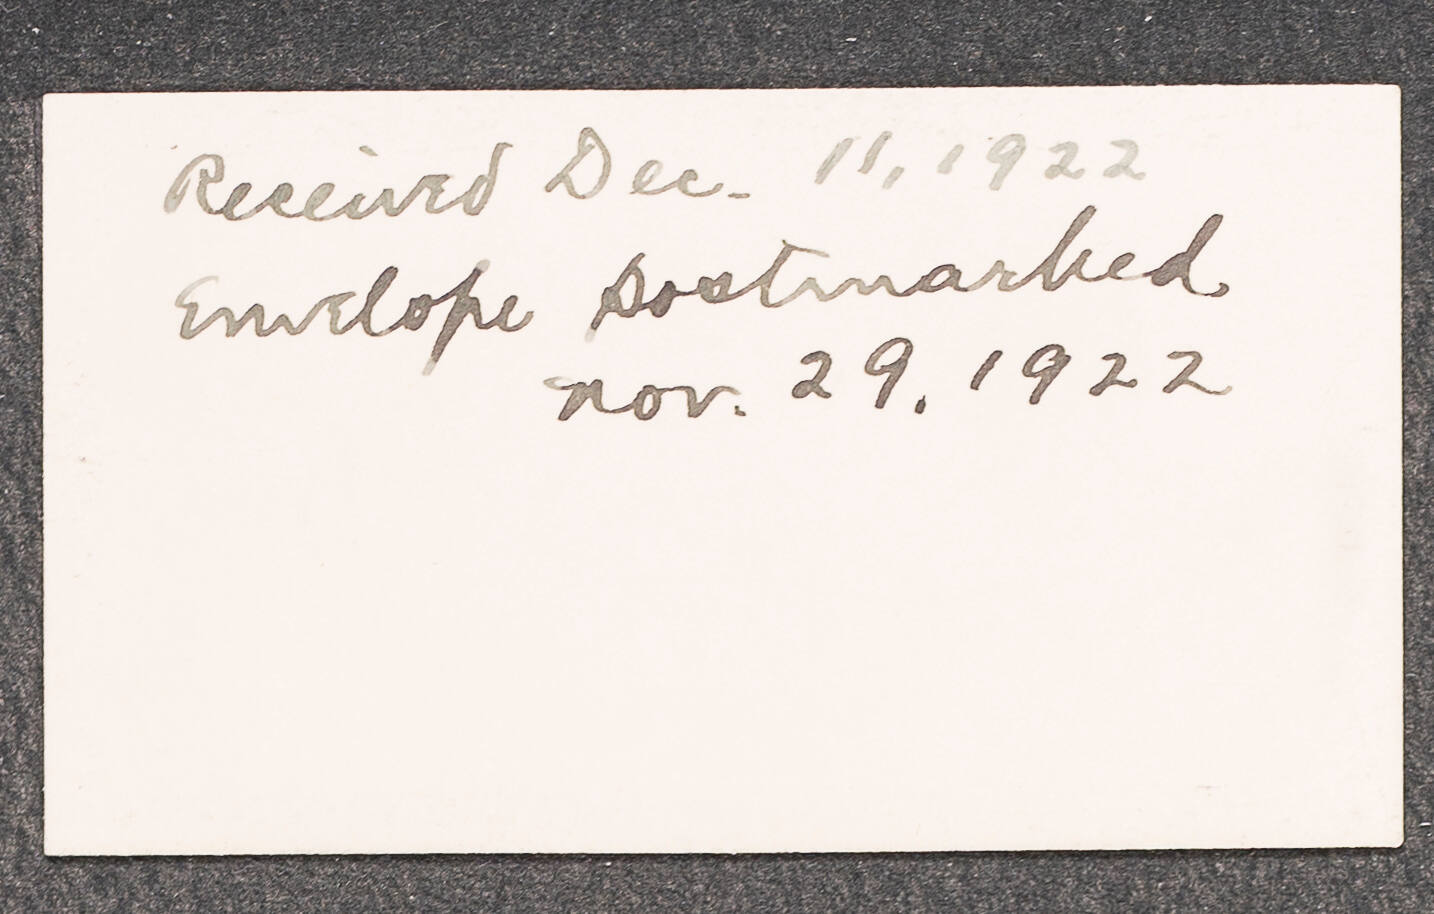 Received Dec. 11, 1922
Envelope postmarked
nov. 29, 1922